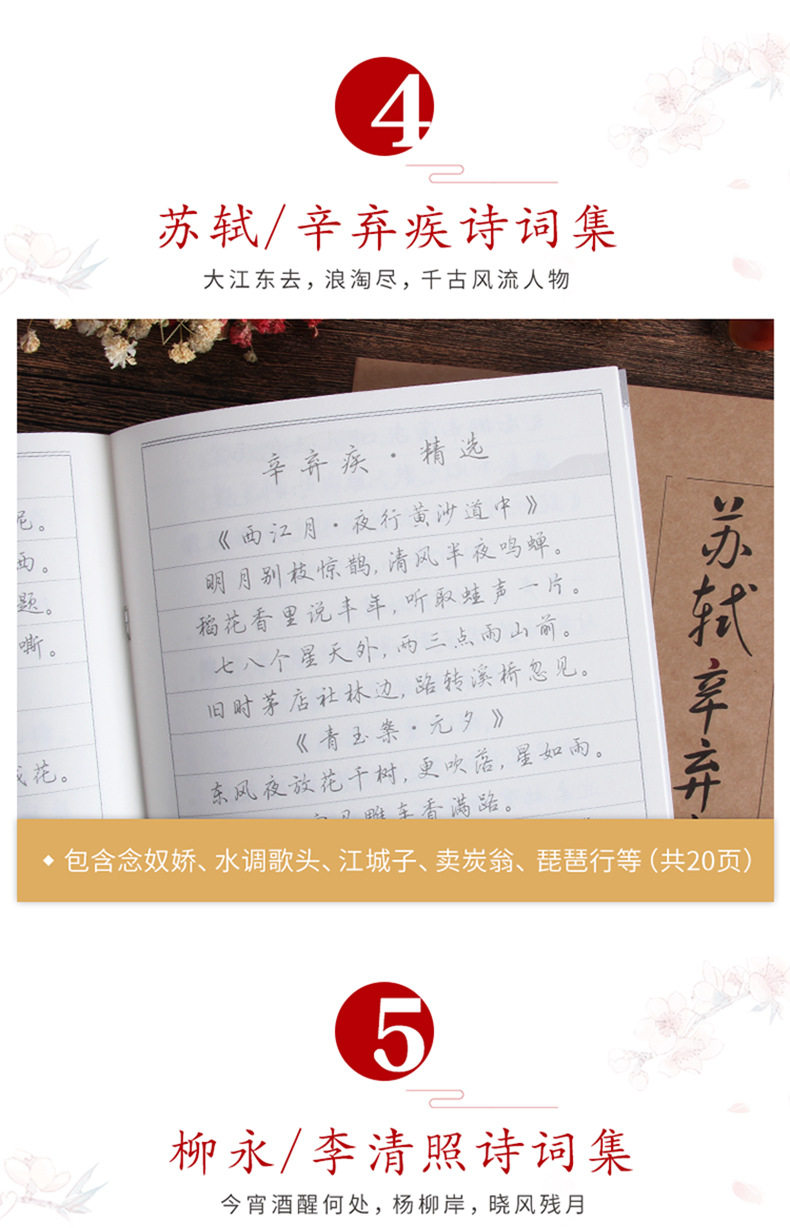 4
苏轼/辛弃疾诗词集
大江东去，浪淘尽，千古风流人物
辛弃疾·精选
《西江月·夜行黄沙道中》
明月别枝惊鹊，清风半夜鸣蝉。
稻花香里说丰年，听取蛙声一片。
七八个星天外，两三点雨山前。
旧时茅店社林边，路转溪桥忽见。
《青玉案·元夕》
东风夜放花千树，更吹落，星如雨。
雕车香满路。
西。
题。
嘶。
花。
苏轼辛弃
◆ 包含念奴娇、水调歌头、江城子、卖炭翁、琵琶行等（共20页）
5
柳永/李清照诗词集
今宵酒醒何处，杨柳岸，晓风残月